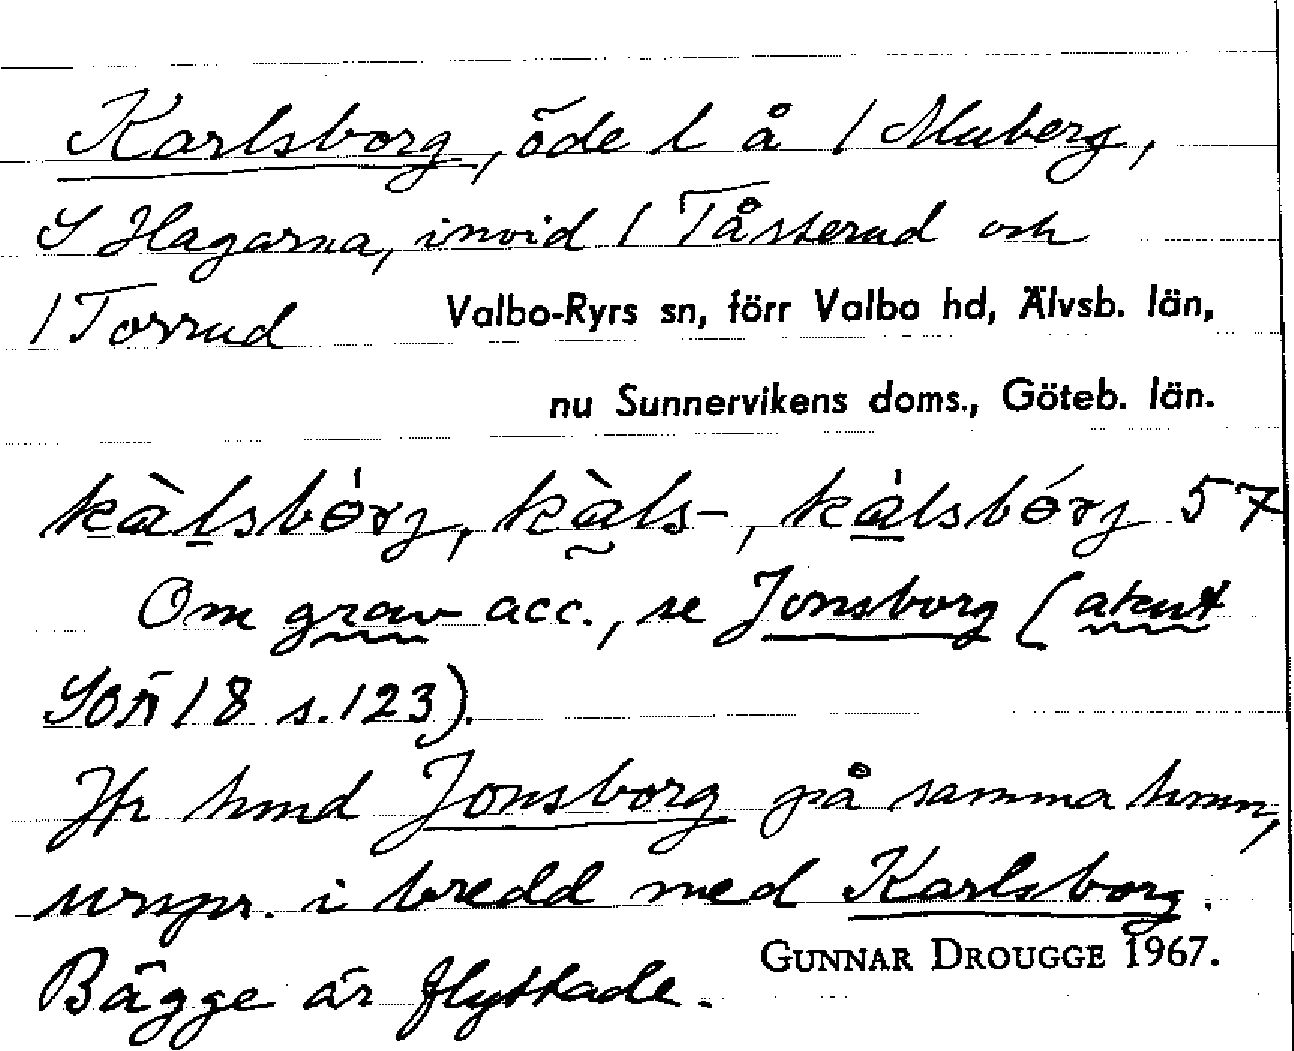 Karlsborg, öde l å 1 Muberg,
S Hagarna, invid 1 Tåsterud och
1 Torrud Valbo-Ryrs sn, förr Valbo hd, Älvsb. län,
nu Sunnervikens doms., Göteb. län.
kàlsbórg, kàls-, kálsbórg 57
Om grav acc., se Jonsborg (akut
SOÄ 18 s. 123).
Jfr hmd Jonsborg på samma hmn,
urspr. i bredd med Karlsborg.
Bägge är flyttade. GUNNAR DROUGGE 1967.